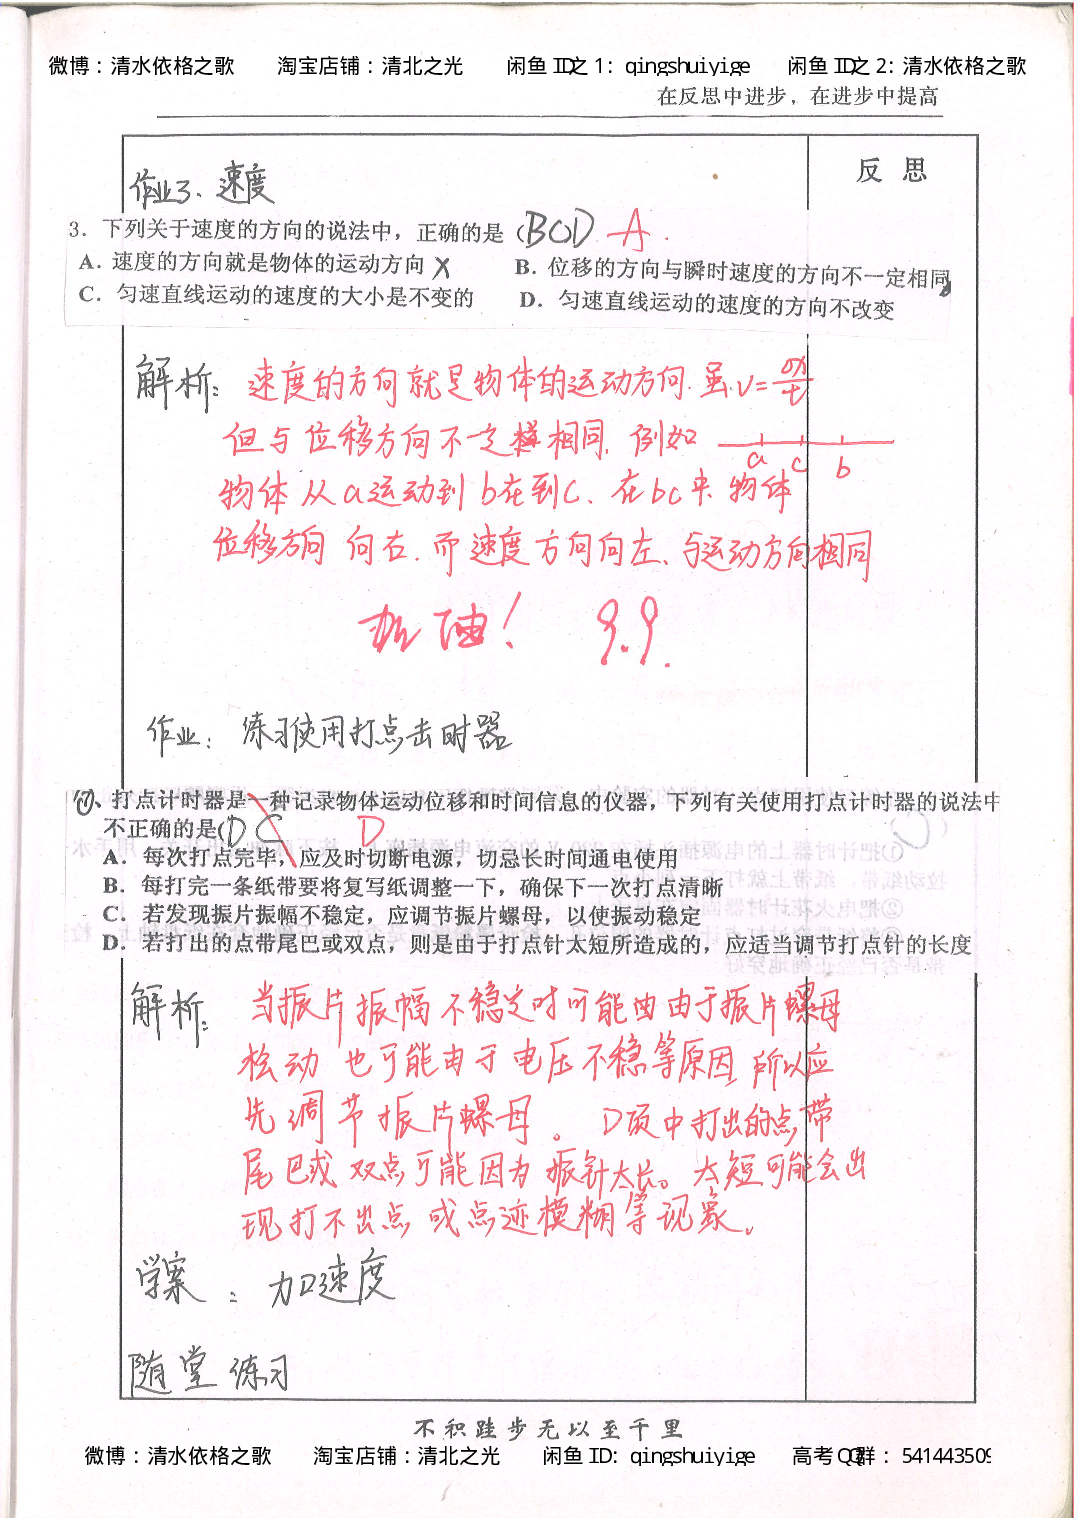 微博：清水依格之歌 淘宝店铺：清北之光 闲鱼 ID之 1: qingshuiyige 闲鱼 ID之 2: 清水依格之歌
在反思中进步，在进步中提高
反思
作业3、速度
3. 下列关于速度的方向的说法中，正确的是（BCD A.
A. 速度的方向就是物体的运动方向 X B. 位移的方向与瞬时速度的方向不一定相同
C. 匀速直线运动的速度的大小是不变的 D. 匀速直线运动的速度的方向不改变
解析：速度的方向就是物体的运动方向.虽v=Δx/t
但与位移方向不一定相同.例如
a c b
物体从a运动到b在到c、在bc中.物体
位移方向 向右.而速度方向向左、与运动方向相同
加油！ 9.9.
作业：练习使用打点击时器
⑰、打点计时器是一种记录物体运动位移和时间信息的仪器，下列有关使用打点计时器的说法中
不正确的是(DC D
A. 每次打点完毕，应及时切断电源，切忌长时间通电使用
B. 每打完一条纸带要将复写纸调整一下，确保下一次打点清晰
C. 若发现振片振幅不稳定，应调节振片螺母，以使振动稳定
D. 若打出的点带尾巴或双点，则是由于打点针太短所造成的，应适当调节打点针的长度
解析：当振片振幅不稳定时可能由由于振片螺母
松动 也可能由于电压不稳等原因 所以应
先调节振片螺母。 D项中打出的点带
尾巴或双点可能因为振针太长。太短可能会出
现打不出点或点迹模糊等现象。
学案：加速度
随堂练习
不积跬步无以至千里
微博：清水依格之歌 淘宝店铺：清北之光 闲鱼 ID: qingshuiyige 高考QQ群：541443509